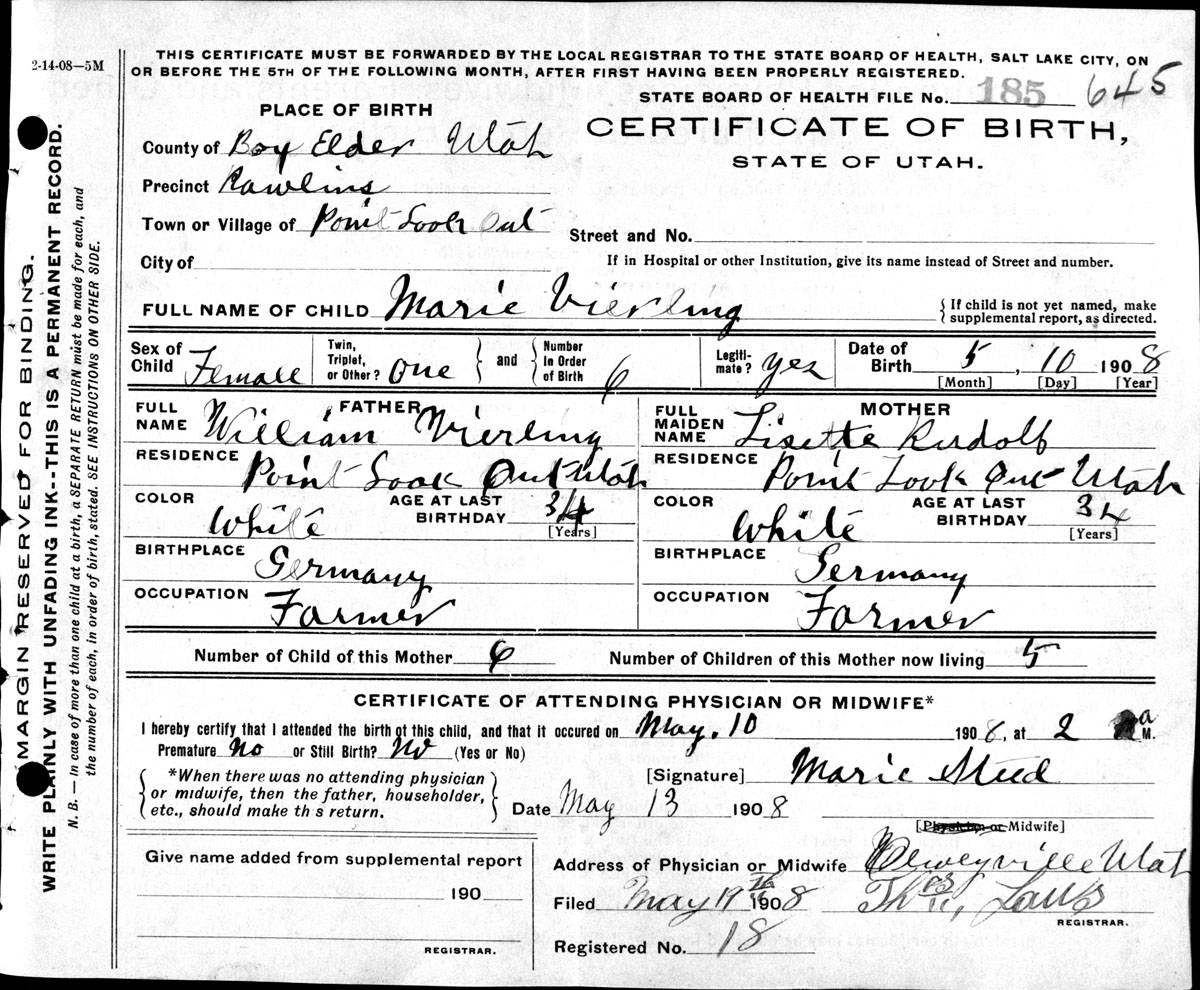 2-14-08—5M
THIS CERTIFICATE MUST BE FORWARDED BY THE LOCAL REGISTRAR TO THE STATE BOARD OF HEALTH, SALT LAKE CITY, ON
OR BEFORE THE 5TH OF THE FOLLOWING MONTH, AFTER FIRST HAVING BEEN PROPERLY REGISTERED.
STATE BOARD OF HEALTH FILE No. 185 645
PLACE OF BIRTH
CERTIFICATE OF BIRTH,
STATE OF UTAH.
County of Box Elder Utah
Precinct Rawlins
Town or Village of Point Look Out
Street and No.
City of
If in Hospital or other Institution, give its name instead of Street and number.
FULL NAME OF CHILD Marie Vierling
{If child is not yet named, make
supplemental report, as directed.
Sex of Child Female
Twin, Triplet, or Other? One
and
Number in Order of Birth 6
Legiti-mate? yes
Date of Birth 5, 10 1908
[Month] [Day] [Year]
FATHER
FULL NAME William Vierling
RESIDENCE Point Look Out Utah
COLOR White
AGE AT LAST BIRTHDAY 34
[Years]
BIRTHPLACE Germany
OCCUPATION Farmer
MOTHER
FULL MAIDEN NAME Lisette Rudolf
RESIDENCE Point Look Out Utah
COLOR White
AGE AT LAST BIRTHDAY 34
[Years]
BIRTHPLACE Germany
OCCUPATION Farmer
Number of Child of this Mother 6
Number of Children of this Mother now living 5
CERTIFICATE OF ATTENDING PHYSICIAN OR MIDWIFE*
I hereby certify that I attended the birth of this child, and that it occured on May. 10 1908, at 2 a M.
Premature No or Still Birth? No (Yes or No)
*When there was no attending physician
or midwife, then the father, householder,
etc., should make th s return.
[Signature] Marie Steed
Date May 13 1908
[Physician or Midwife]
Give name added from supplemental report
190
REGISTRAR.
Address of Physician or Midwife Deweyville Utah
Filed May 19th 1908
REGISTRAR.
Registered No. 18
MARGIN RESERVED FOR BINDING.
WRITE PLAINLY WITH UNFADING INK--THIS IS A PERMANENT RECORD.
N. B. — In case of more than one child at a birth, a SEPARATE RETURN must be made for each, and
the number of each, in order of birth, stated. SEE INSTRUCTIONS ON OTHER SIDE.